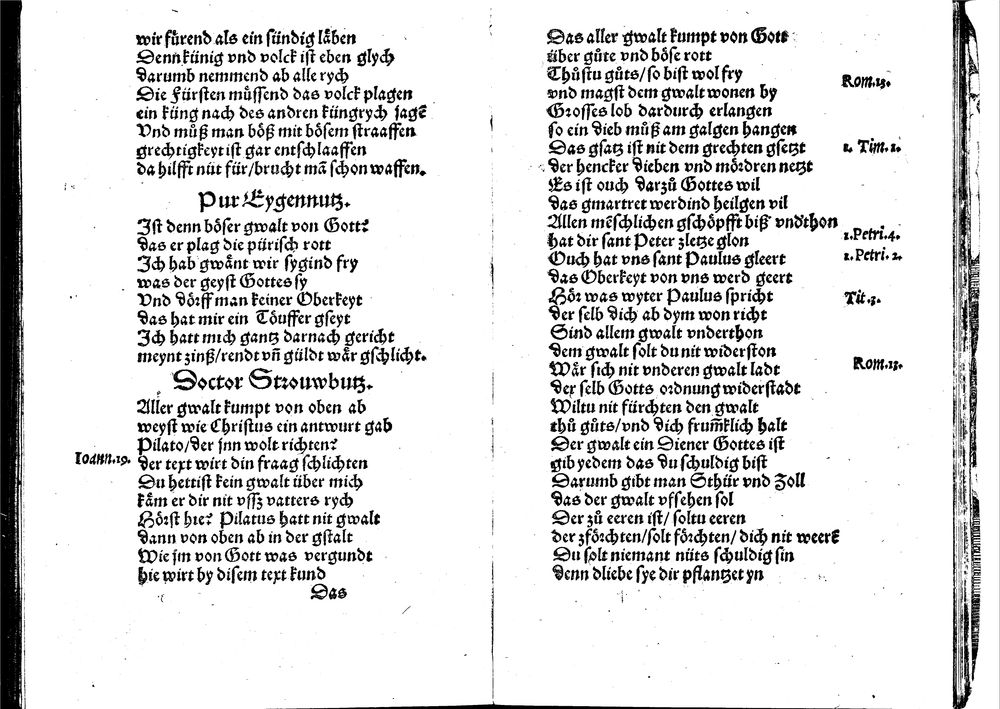 wir fürend als ein sündig läben
Denn künig vnd volck ist eben glych
darumb nemmend ab alle rych
Die Fürsten müssend das volck plagen
ein küng nach des andren küngrych jagē
Vnd můß man böß mit bösem straaffen
grechtigkeyt ist gar entschlaaffen
da hilfft nüt für/brucht mā schon waffen.
Pur Eygennutz.
Ist denn böser gwalt von Gott?
das er plag die pürisch rott
Ich hab gwänt wir sygind fry
was der geyst Gottes sy
Vnd dörff man keiner Oberkeyt
das hat mir ein Töuffer gseyt
Ich hatt mich gantz darnach gericht
meynt zinß/rendt vñ güldt wär gschlicht.
Doctor Strouwbutz.
Aller gwalt kumpt von oben ab
weyst wie Christus ein antwurt gab
Pilato/der jnn wolt richten?
Ioann.19.
der text wirt din fraag schlichten
Du hettist kein gwalt über mich
käm er dir nit vssz vatters rych
Hörst hie? Pilatus hatt nit gwalt
dann von oben ab in der gstalt
Wie jm von Gott was vergundt
hie wirt by disem text kund
Das
Das aller gwalt kumpt von Gott
über gůte vnd böse rott
Thůstu gůts/so bist wol fry
Rom.13.
vnd magst dem gwalt wonen by
Grosses lob dardurch erlangen
so ein dieb můß am galgen hangen
Das gsatz ist nit dem grechten gsetzt
1. Tim.1.
der hencker dieben vnd mördren netzt
Es ist ouch darzů Gottes wil
das gmartret werdind heilgen vil
Allen mēschlichen gschöpfft biß vndthon
hat dir sant Peter zletze glon
1.Petri.4.
Ouch hat vns sant Paulus gleert
1.Petri.2.
das Oberkeyt von vns werd geert
Hör was wyter Paulus spricht
Tit.3.
der selb dich ab dym won richt
Sind allem gwalt vnderthon
dem gwalt solt du nit widerston
Wär sich nit vnderen gwalt ladt
Rom.13.
der selb Gotts ordnung widerstadt
Wiltu nit fürchten den gwalt
thů gůts/vnd dich frum̄klich halt
Der gwalt ein Diener Gottes ist
gib yedem das du schuldig bist
Darumb gibt man Sthür vnd Zoll
das der gwalt vfsehen sol
Der zů eeren ist/ soltu eeren
der zförchten/solt förchten/ dich nit weerē
Du solt niemant nüts schuldig sin
denn dliebe sye dir pflantzet yn